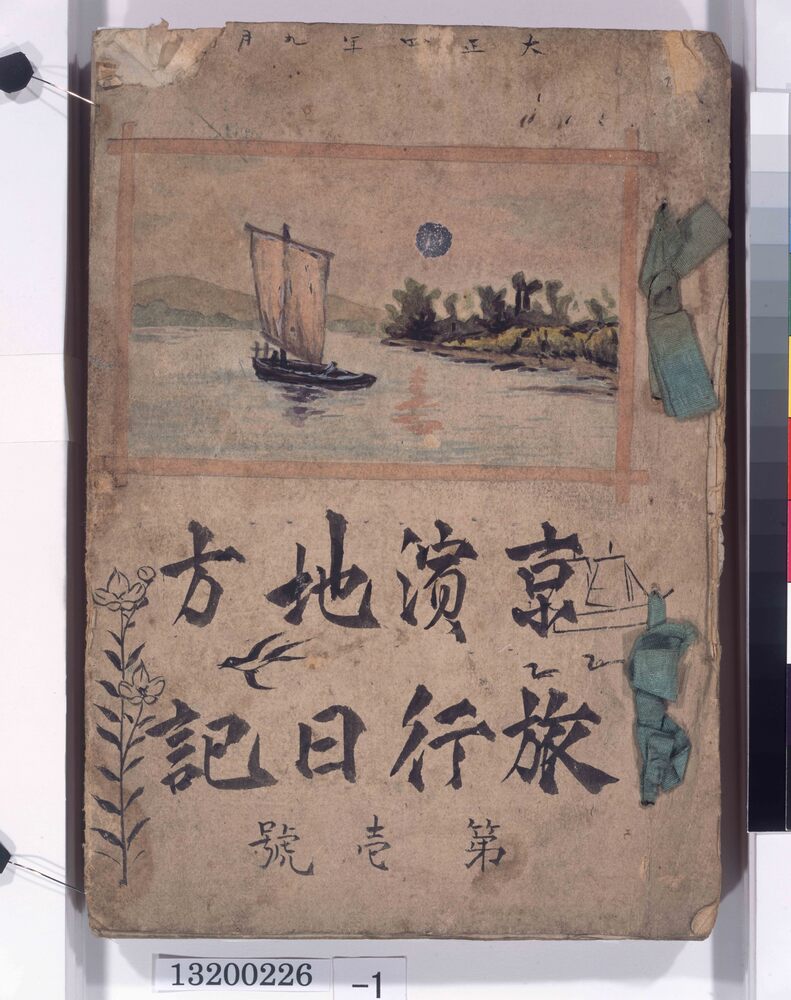 大正四年九月
京濱地方
旅行日記
第壱號
13200226
-1